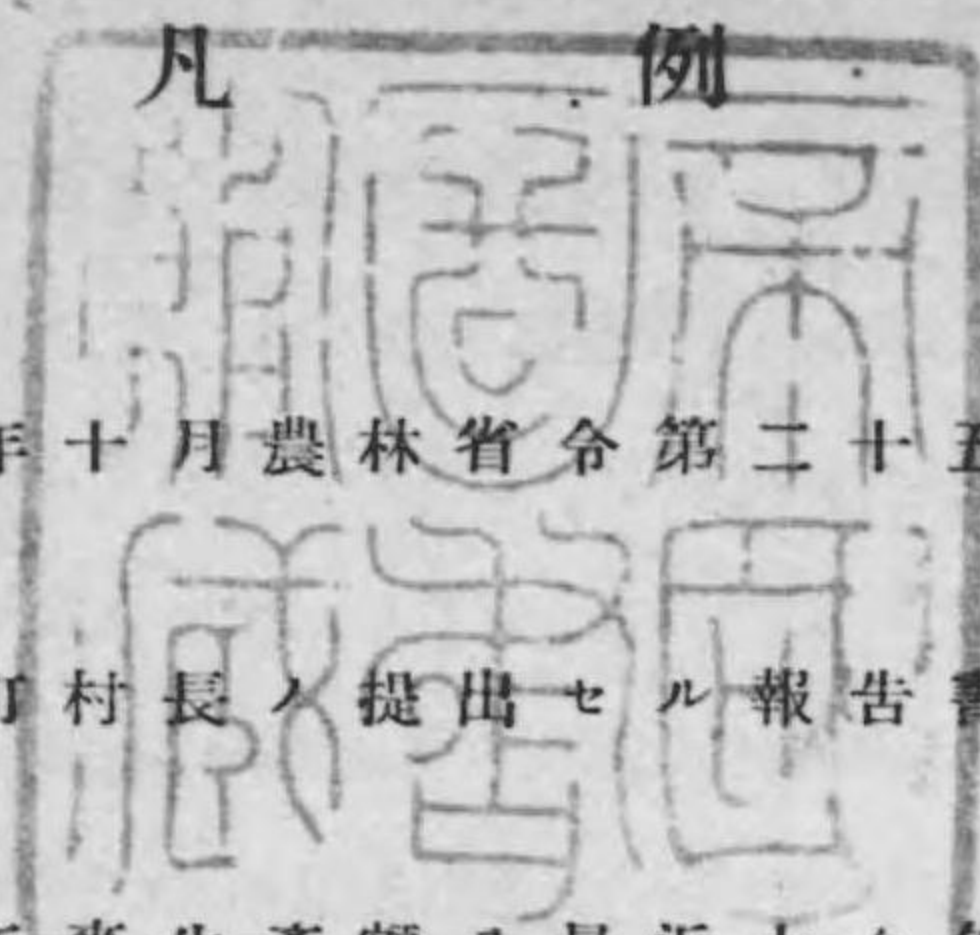 凡例
年十月農林省令第二十五
町村長ノ提出セル報告書
帝國
圖書
館藏